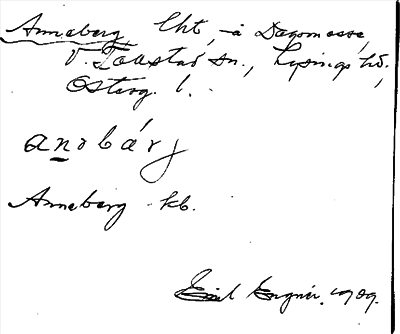 Anneberg, lht, å Dagsmosse,
V. Tollstad sn., Lysings hd.,
Österg. l.
anəbárj
Anneberg kb.
Emil Engnér. 1909.